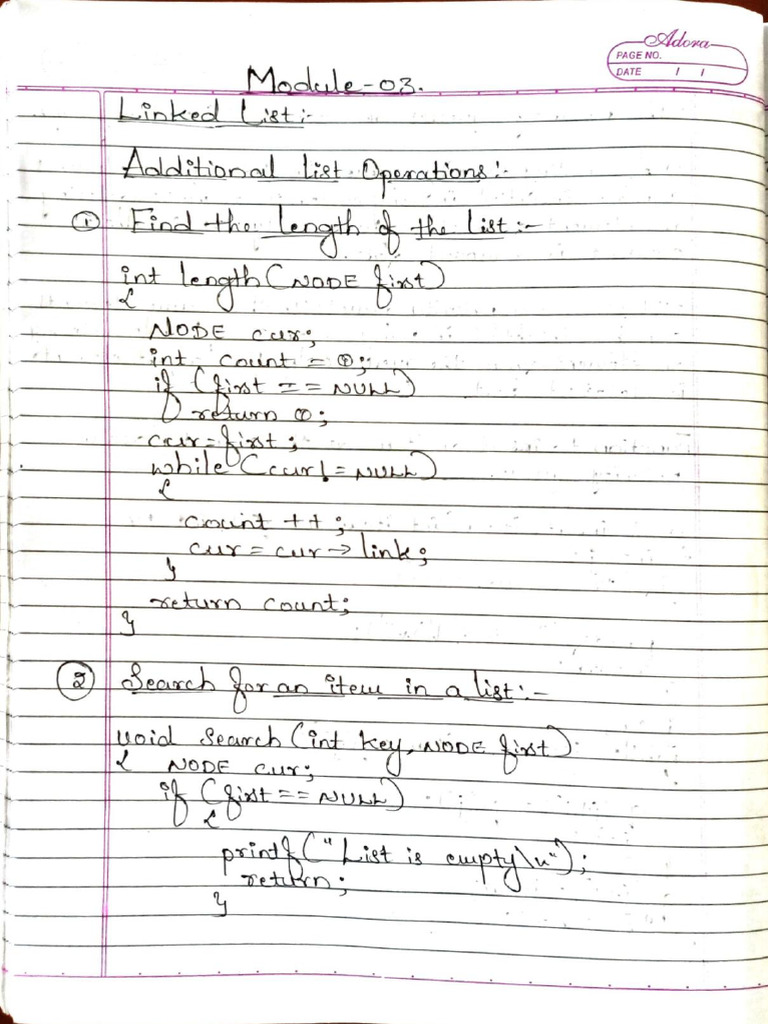 Adora
PAGE NO.
DATE / /
Module-03.
Linked List:-
Additional list Operations:-
① Find the length of the list:-
int length (NODE first)
{
NODE cur;
int count = 0;
if (first == NULL)
return 0;
cur = first;
while (cur! = NULL)
{
count ++;
cur = cur → link;
}
return count;
}
② Search for an item in a list:-
void Search (int key, NODE first)
{ NODE cur;
if (first == NULL)
{
printf (" List is empty\n");
return;
}